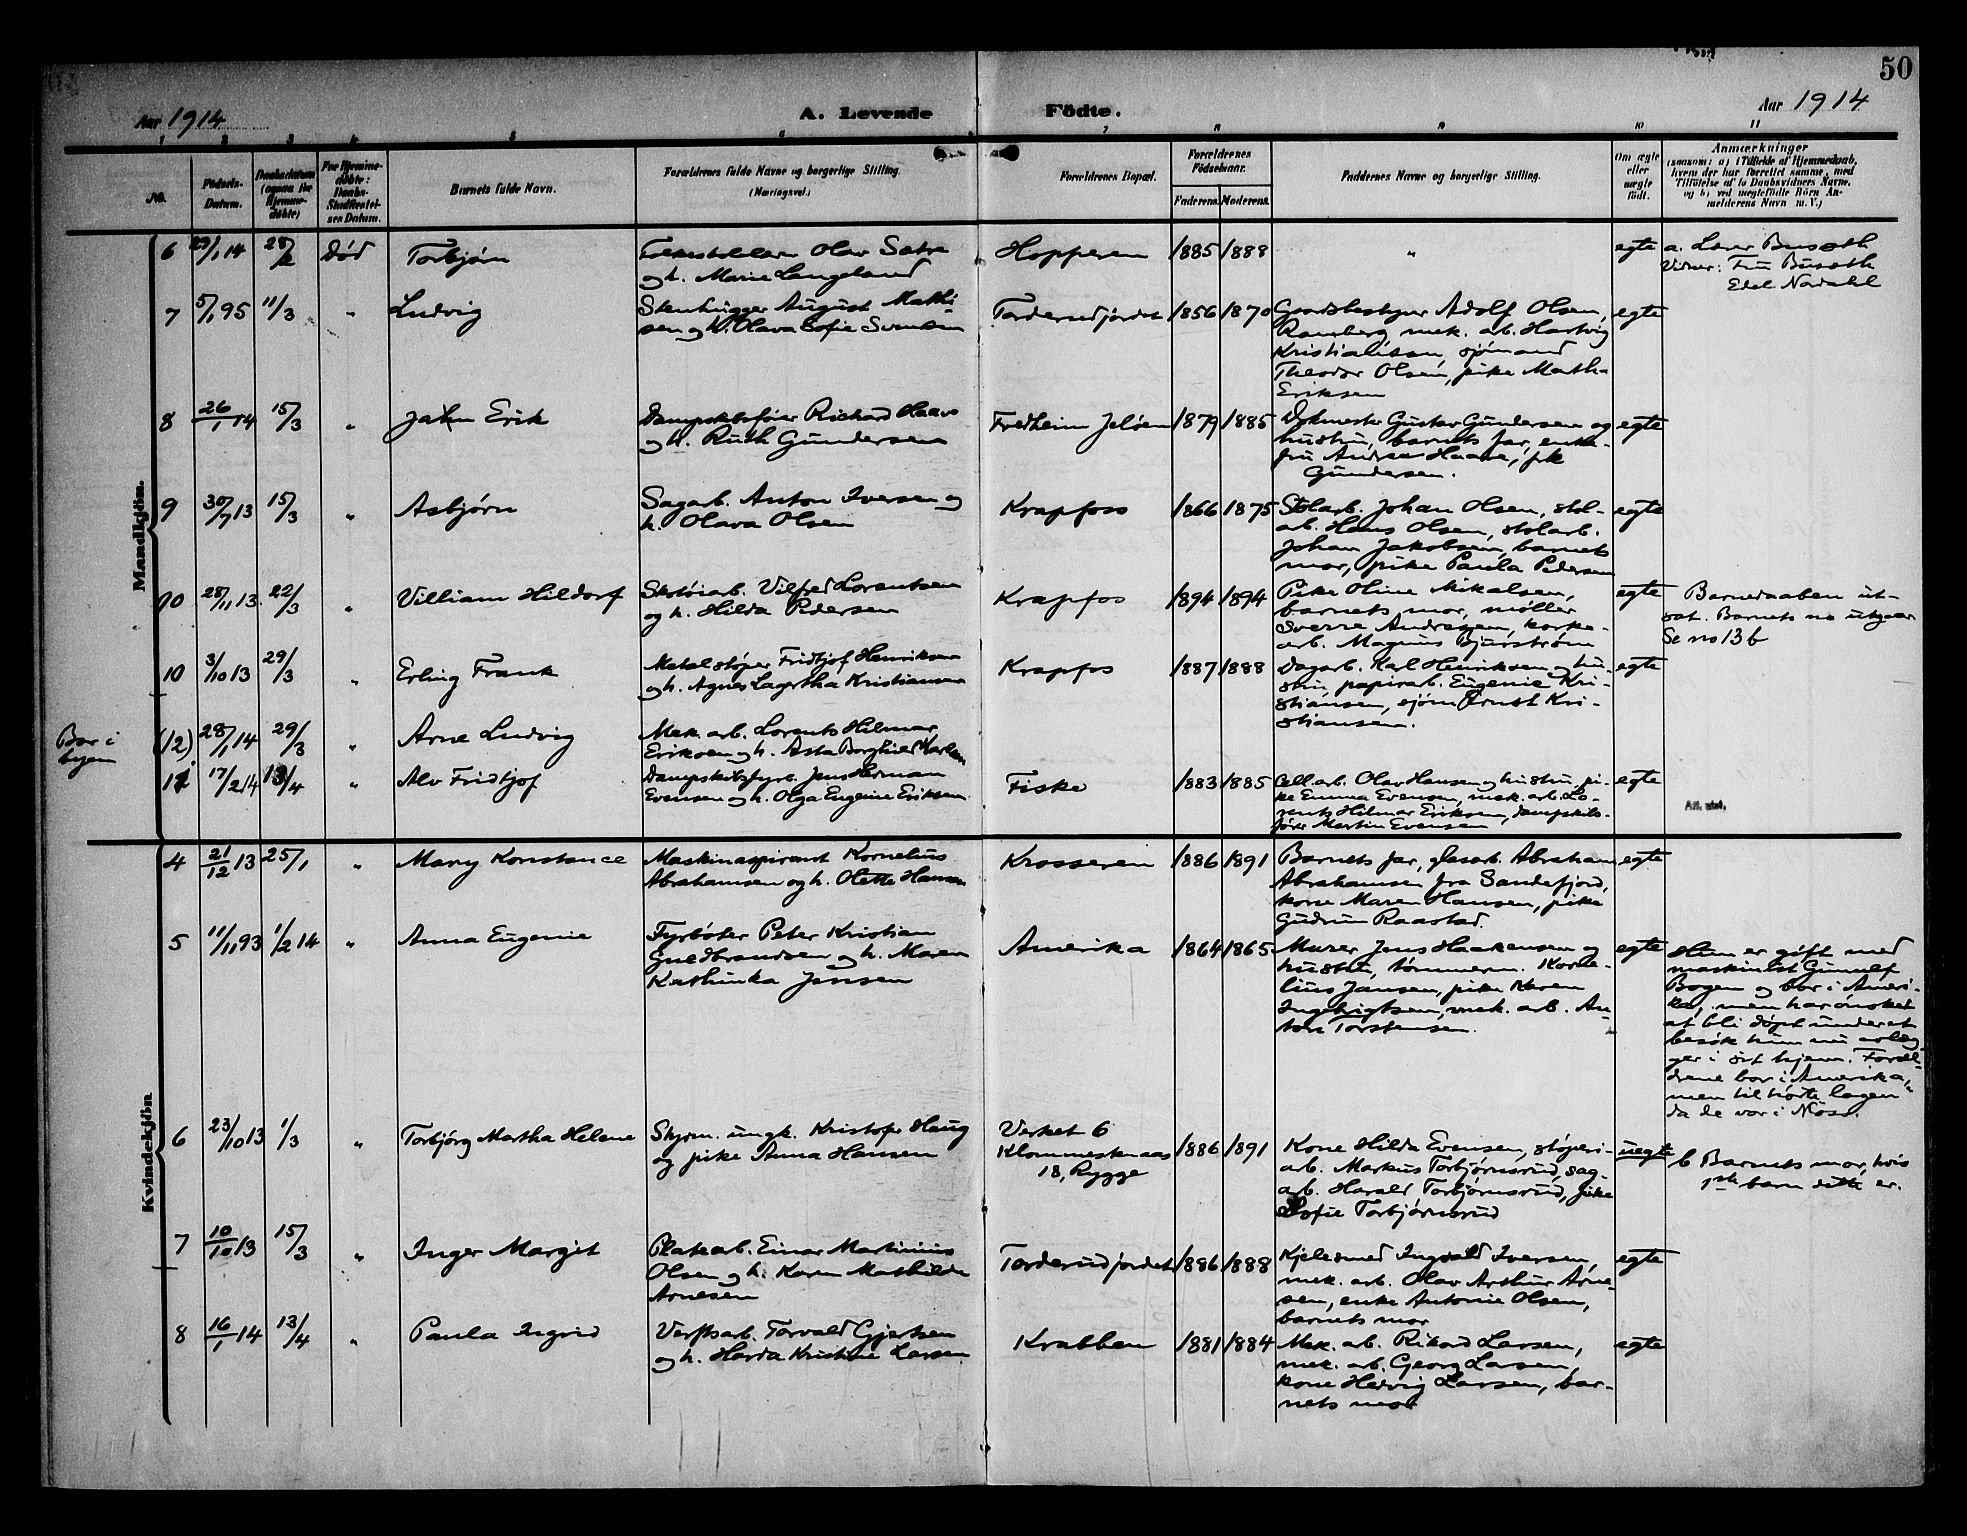 50
Aar 1914
A. Levende Födte.
Aar 1914
1 2 3 4 5 6 7 8 9 10 11
No.
Födsels-
Datum.
Daabsdatum
(ogsaa for
Hjemme-
döbte)
For Hjemme-
döbte:
Daabs-
Stadfæstel-
ses Datum.
Barnets fulde Navn.
Forældrenes fulde Navne og borgerlige Stilling.
(Næringsvei.)
Forældrenes Bopæl.
Forældrenes
Födselsaar.
Faderens. Moderens.
Faddernes Navne og borgerlige Stilling.
Om ægte
eller
uægte
født.
Anmærkninger
(saasom: a) i Tilfælde af Hjemmedaab,
hvem der har forrettet samme, med
Tilföielse af to Daabsvidners Navne,
og b) ved uægtefödte Börn An-
melderens Navn m. V.)
Mandkjön.
6 29/1 14 28/2 Död Torbjørn
Olav Sætre
og h. Marie Langeland
Hopperen 1885 1888 " egte
a. Lærer Busæth
Vidner: Fru Busæth
Edel Nadahl
7 5/1 95 11/3 " Ludvig
Stenhugger August Mathi-
sen og h. Olava Sofie Svensen
Torderudjordet 1856 1870
Gaardsbestyrer Adolf Olsen,
Ramberg mek. arb. Hartvig
Kristiansen, sjömand
Theodor Olsen, pike Martha
Eriksen
egte
8 26/1 14 15/3 " Jahn Erik
Dampskibsfører Richard Haave
og h. Ruth Gundersen
Fredheim Jeløen 1879 1885
Dykmester Gustav Gundersen og
hustru, barnets far, enke-
fru Andrea Haave, pk
Gundersen.
egte
9 30/7 13 15/3 " Asbjørn
Sagarb. Anton Iversen og
h. Olava Olsen
Krapfoss 1866 1875
Stolarb. Johan Olsen, stol-
arb. Hans Olsen, stolarb.
Johan Jakobsen, barnets
mor, pike Paula Pedersen
egte
10 28/11 13 22/3 " Villiam Hildorf
Skotøiarb. Vilfred Lorentsen
og h. Hilda Pedersen
Krapfos 1894 1894
Pike Oline Mikalsen,
barnets mor, møller
Sverre Andresen, korke-
arb. Magnus Bjurstrøm
egte
Barnedaaben ut-
sat. Barnets no utgaar
Se no 13 b
10 3/10 13 29/3 " Erling Frank
Metalstøper Fridtjof Henriksen
og h. Agnes Lagertha Kristiansen
Krapfos 1887 1888
Dagarb. Karl Henriksen og hu-
stru, papirarb. Eugenie Kri-
stiansen, sjöm Ernst Kri-
stiansen.
egte
Bor i
byen
(12) 28/1 14 29/3 " Arne Ludvig
Mek. arb. Lorents Hilmar
Eriksen og h. Asta Borghild Karlsen
11 17/2 14 13/4 " Alv Fridtjof
Dampskibsfyrb. Jens Herman
Evensen og h. Olga Eugenie Eriksen
Fiske 1883 1885
Cell. arb. Olav Hansen og hustru, pi-
ke Emma Evensen, mek. arb. Lo-
rents Hilmar Eriksen, dampskibs-
fører Martin Evensen
egte
Kvindekjön
4 21/12 13 25/1 " Mary Konstance
Maskinaspirant Kornelius
Abrahamsen og h. Olette Hansen
Krosseren 1886 1891
Barnets far, glasarb. Abraham
Abrahamsen fra Sandefjord,
kone Maren Hansen, pike
Gudrun Raastad.
egte
5 11/11 93 1/2 14 " Anna Eugenie
Fyrbøter Peter Kristian
Guldbrandsen og h. Maren
Kathinka Jensen
Amerika 1864 1865
Murer Jens Haakensen og
hustru, tømmerm. Korne-
lius Jansen, pike Karen
Ingebrigtsen, mek. arb. An-
ton Torstensen.
egte
Hun er gift med
maskinist Gunnulf
Bogen og bor i Ameri-
ka, men har ønsket
at bli døpt under et
besøk hun nu avlæg-
ger i sit hjem. Foræl-
drene bor i Amerika,
men tilhørte lagen
da de var i Moss.
6 23/10 13 1/3 " Torbjørg Martha Helene
Skjerm. ungk. Kristofer Haug
og pike Anna Hansen
Verket 6
Klommestenaas
18, Rygge
1886 1891
Kone Hilda Evensen, støperi-
arb. Markus Torbjørnsrud, sag-
arb. Harald Torbjørnsrud, pike
Sofie Torbjørnsrud
uegte
b Barnets mor, hvis
1ste barn dette er.
7 10/10 13 15/3 " Inger Margit
Platearb. Einar Martinius
Olsen og h. Karen Mathilde
Arnesen
Torderudjordet 1886 1888
Kjelesmed Ingvald Iversen,
mek. arb. Olav Arthur Arne-
sen, enke Antonie Olsen,
barnets mor
egte
8 16/1 14 13/4 " Paula Ingrid
Verftsarb. Torvald Gjertsen
og h. Harda Kristine Larsen
Krabben 1881 1884
Mek. arb. Rikard Larsen,
mek. arb. Georg Larsen,
kone Hedvig Larsen, bar-
nets mor
egte